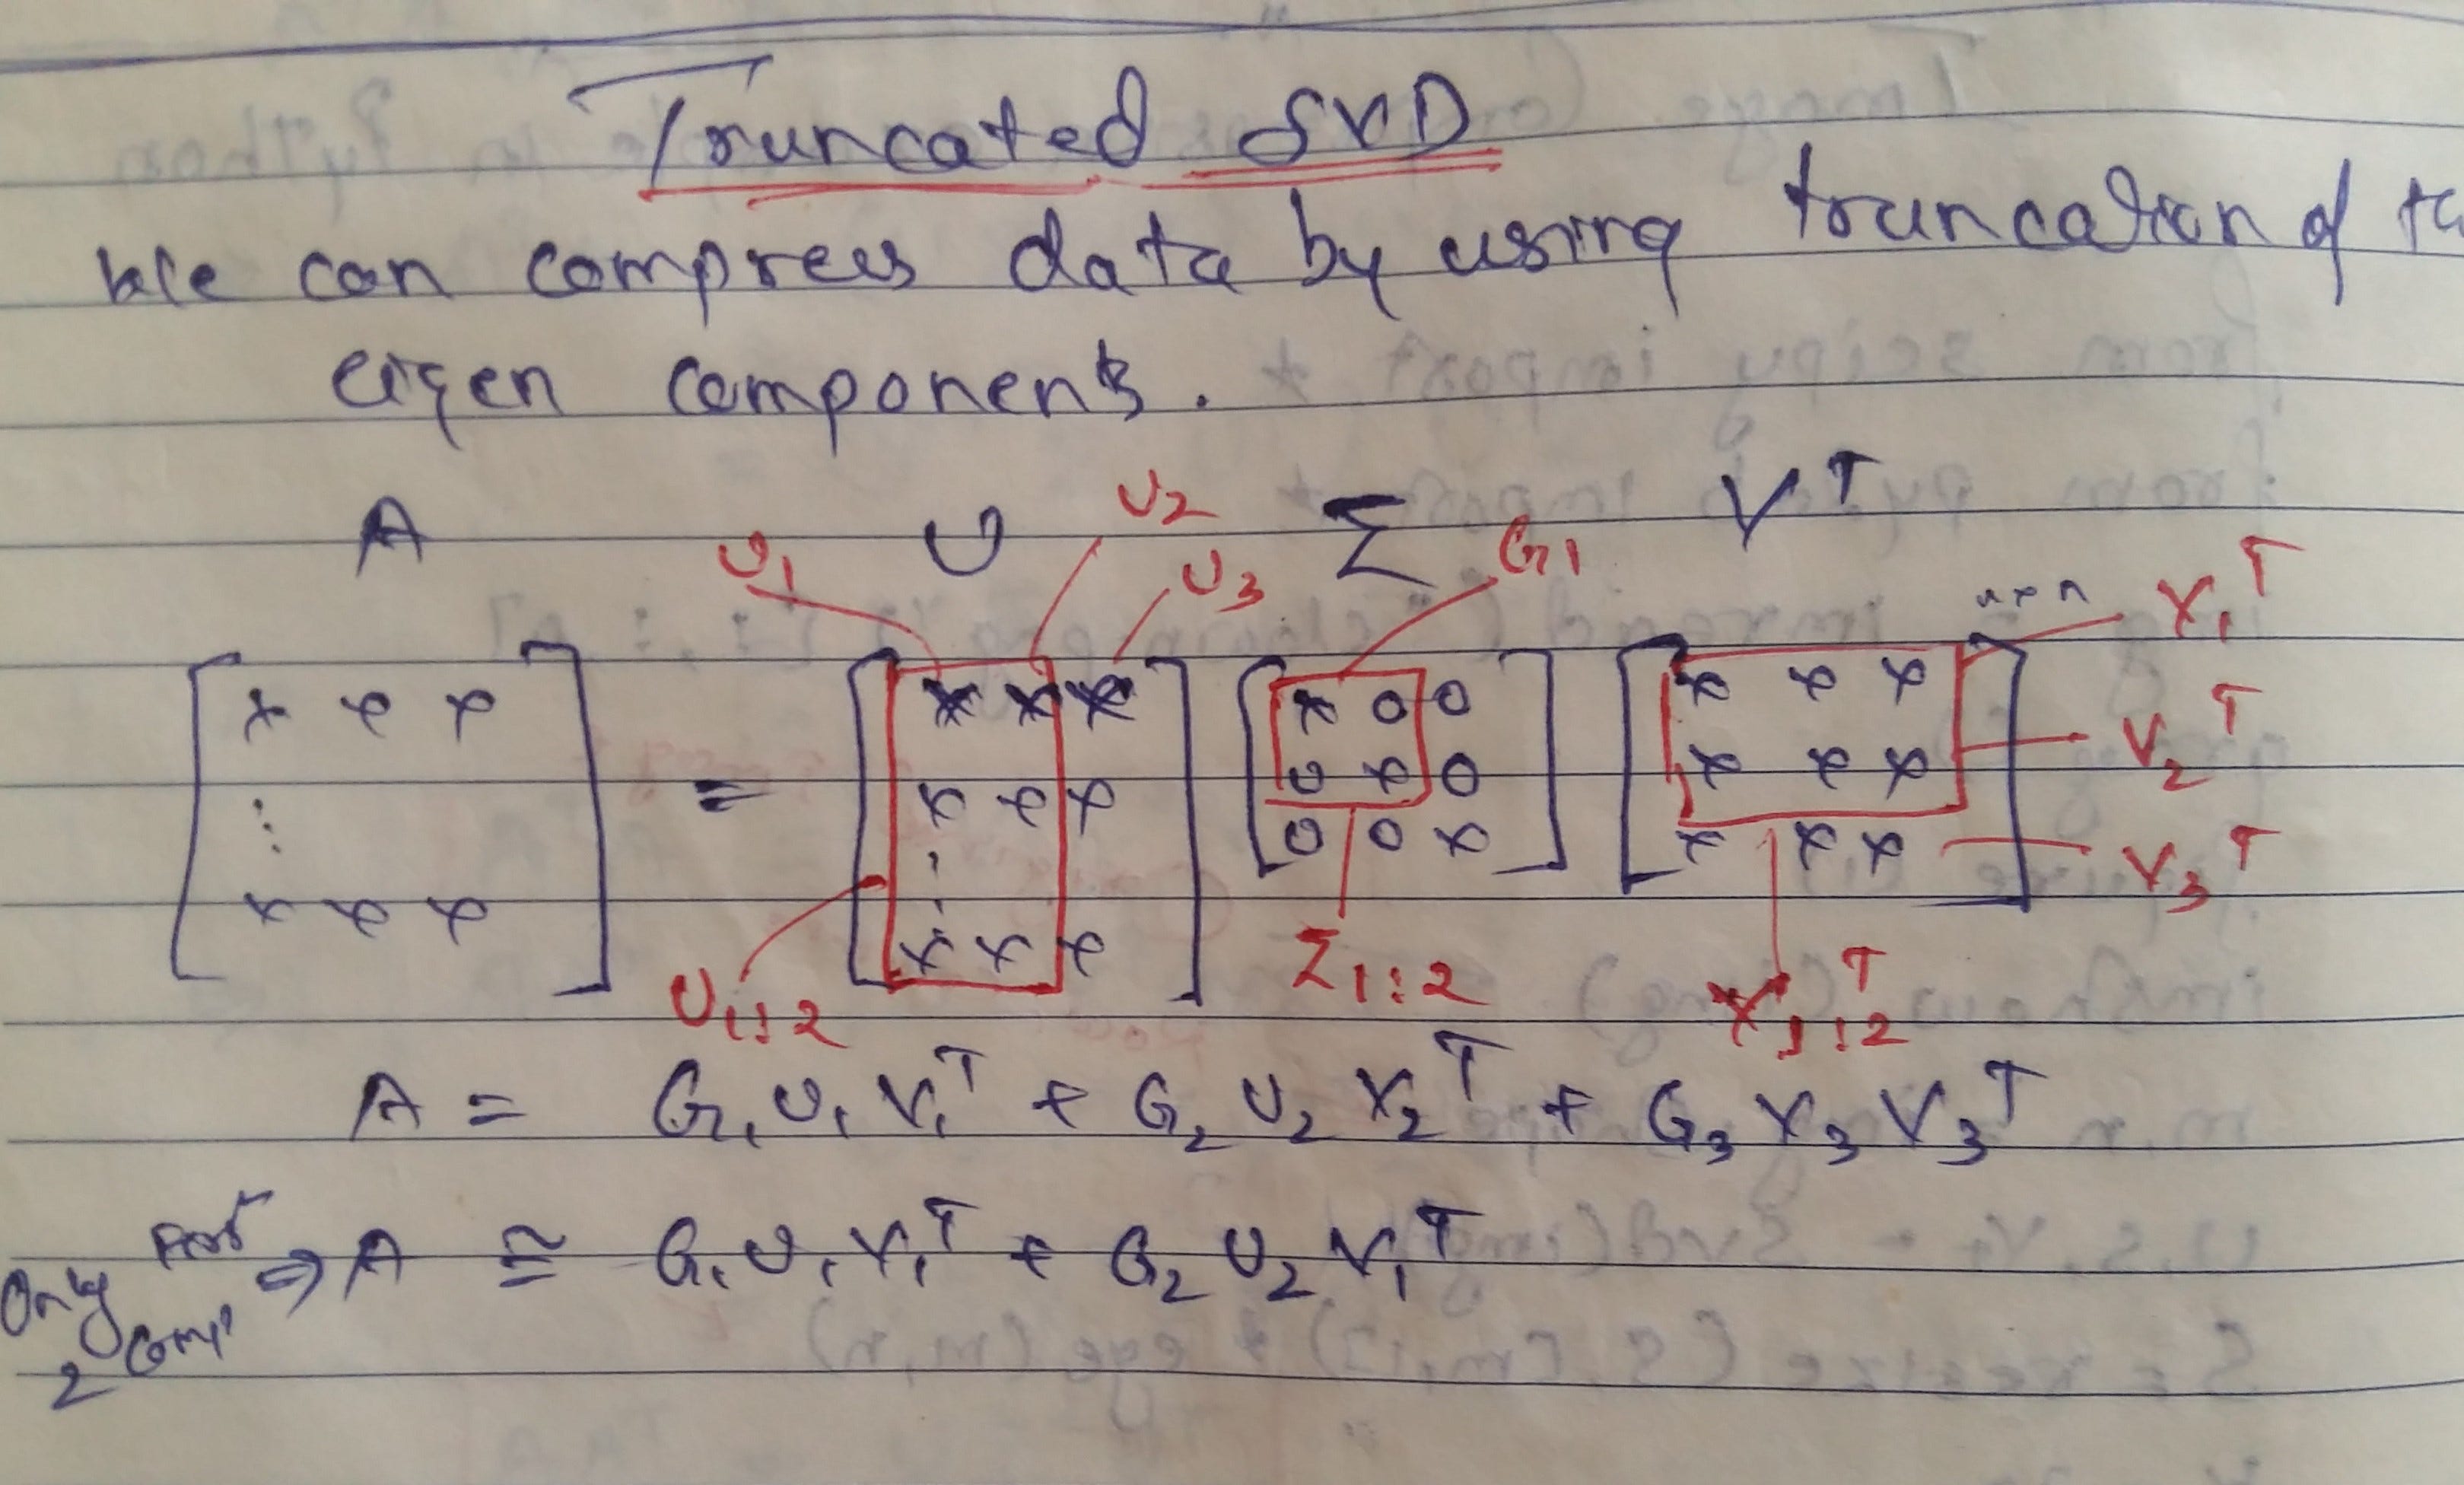 Truncated SVD
We can compress data by using truncation of
eigen components.
A U Σ V^T
U1 U2 U3 G1 n×n V1^T
[ x x x ] = [ x x x ] [ x 0 0 ] [ x x x ]
V2^T
⋮ x x x 0 x 0 x x x
⋮ 0 0 x x x x V3^T
x x x x x x
U1:2 Σ1:2 V1:2^T
A = G1 U1 V1^T + G2 U2 V2^T + G3 V3 V3^T
Only for 2 comp ⇒ A ≅ G1 U1 V1^T + G2 U2 V1^T